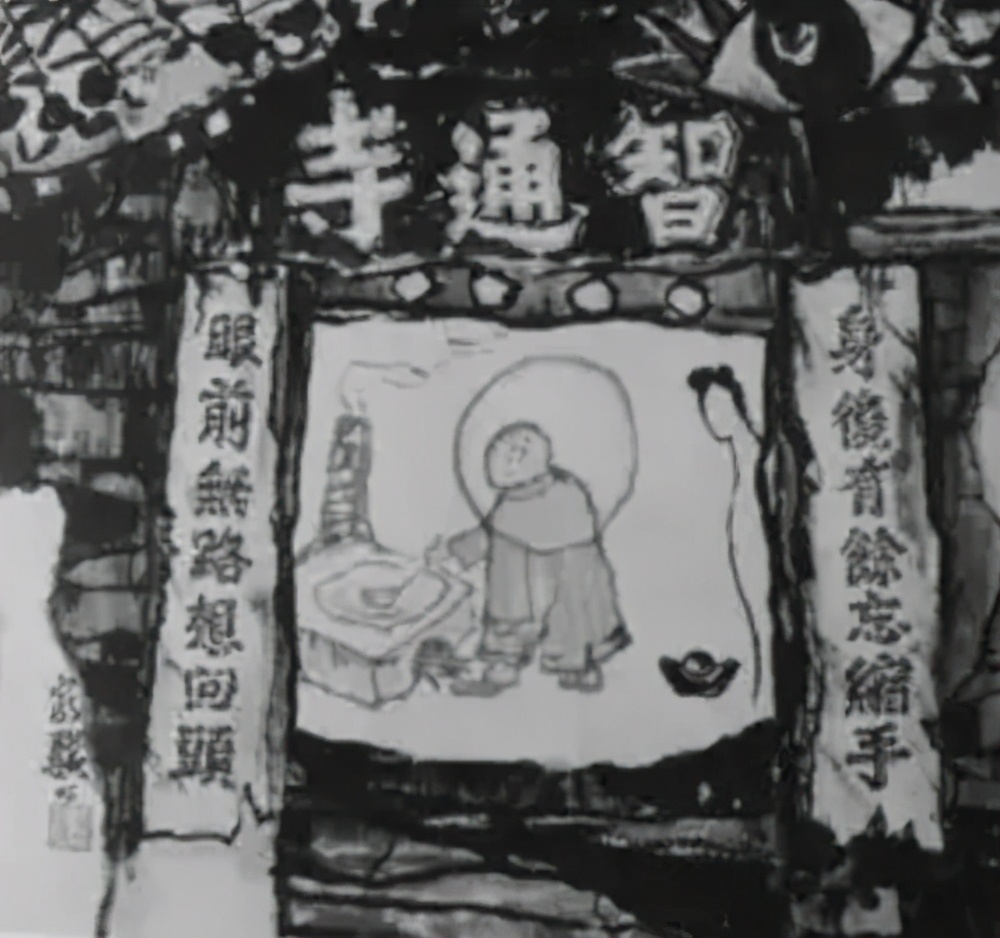 智通寺
身後有餘忘縮手
眼前無路想回頭